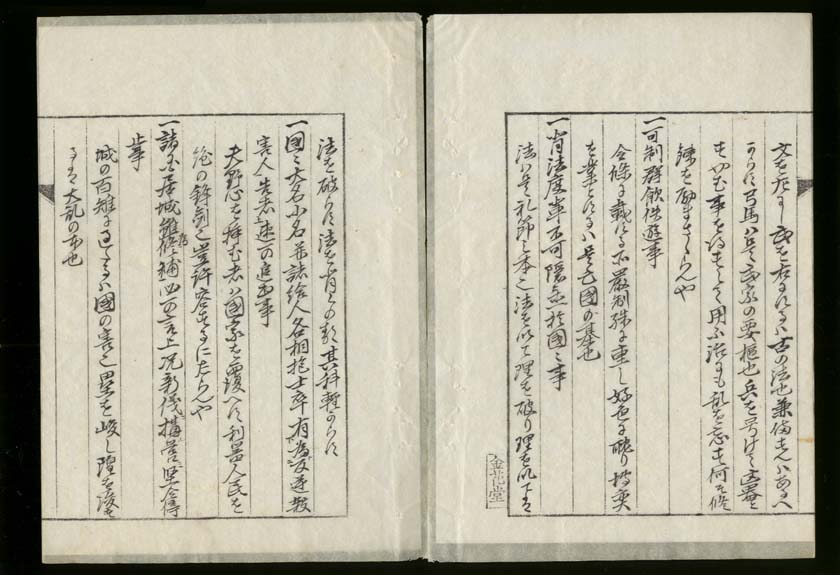 文を左にし武を右にするハ古の法也兼備すんハあるへ
からす弓馬ハ是武家の要樞也兵を号けて凶器と
す止む事を得すして用ふ治にも乱を忘す何そ修
錬を励まさゝらんや
一可制群飲佚遊事
令條に載する所嚴制殊に重し好色に酖り博奕
を業とするハ是亡國の基也
一背法度輩不可隠置於國々事
法ハ是礼節之本也法を以て理を破り理を以て
金花堂
法を破らす法を背くの類其科軽からす
一國々大名小名并諸給人各相抱士卒有為反逆殺
害人告者速可追出事
夫野心を挟む者ハ國家を覆へす利器人民を
絶の鋒劔也豈許容するにたらんや
一諸國居城雖為修補必可言上況新儀構営堅令停
止事
城の百雉に過たるハ國の害也塁を峻し隍を浚も
大乱の本也